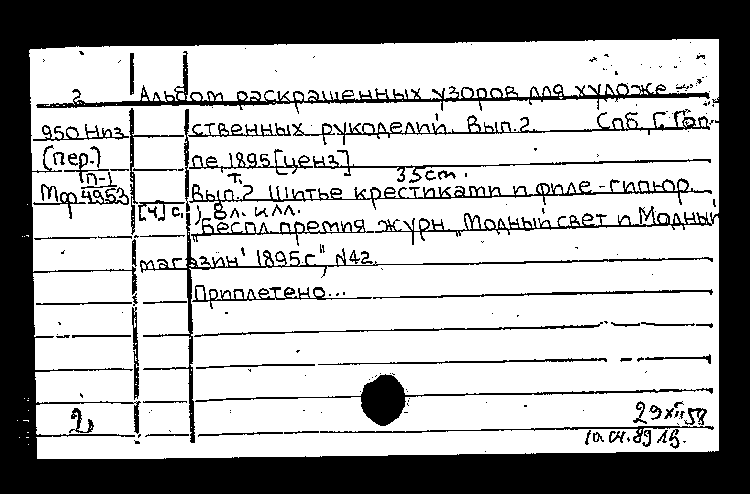 2 Альбом раскрашенных узоров для художе-
950 Низ ственных рукоделий. Вып.2. Спб, Г. Гоп-
(пер.) пе, 1895 [ценз].
П-1 т. 35cm.
Мф 4953 Вып.2 Шитье крестиками и филе-гипюр.
[4] с., 8 л. илл.
"Беспл. премия журн. "Модный свет и Модный
магазин" 1895 г", N42.
Приплетено...
29 XII 58